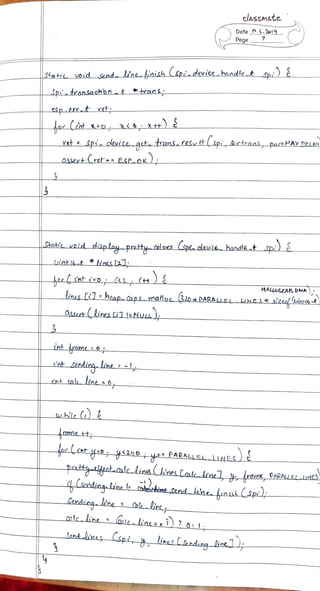 classmate
Date 11.6.2019
Page 7
static void send_line_finish (spi_device_handle_t spi) {
spi_transaction_t *rtrans;
esp_err_t ret;
for (int x=0; x<6; x++) {
ret = spi_device_get_trans_result (spi, &rtrans, portMAX_DELAY
assert (ret == ESP_OK);
}
}
static void display_pretty_colors (spi_device_handle_t spi) {
uint16_t *lines[2];
for (int i=0; i<2, i++) {
MALLOC_CAP_DMA);
lines [i] = heap_caps_malloc (320*PARALLEL_LINES* sizeof(uint16_t)
assert (lines [i] != NULL);
}
int frame = 0;
int sending_line = -1;
int calc_line = 0;
while (1) {
frame ++;
for (int y=0; y<240; y+= PARALLEL_LINES) {
pretty_effect_calc_lines (lines [calc_line], y, frame, PARALLEL_LINES)
if (sending_line != -1) send_line_finish (spi);
sending_line = calc_line;
calc_line = (calc_line == 1) ? 0: 1;
send_lines (spi, y, lines [sending_line]);
}
}
}